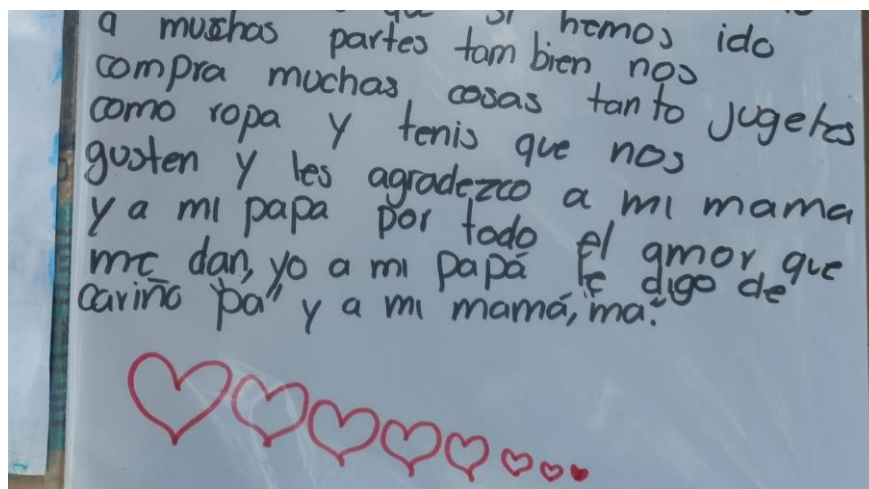 si hemos ido
a muchas partes tam bien nos
compra muchas cosas tanto jugetes
como ropa y tenis que nos
gusten y les agradezco a mi mama
y a mi papa por todo el amor que
me dan, yo a mi papá le digo de
cariño "pa" y a mi mamá, "ma".